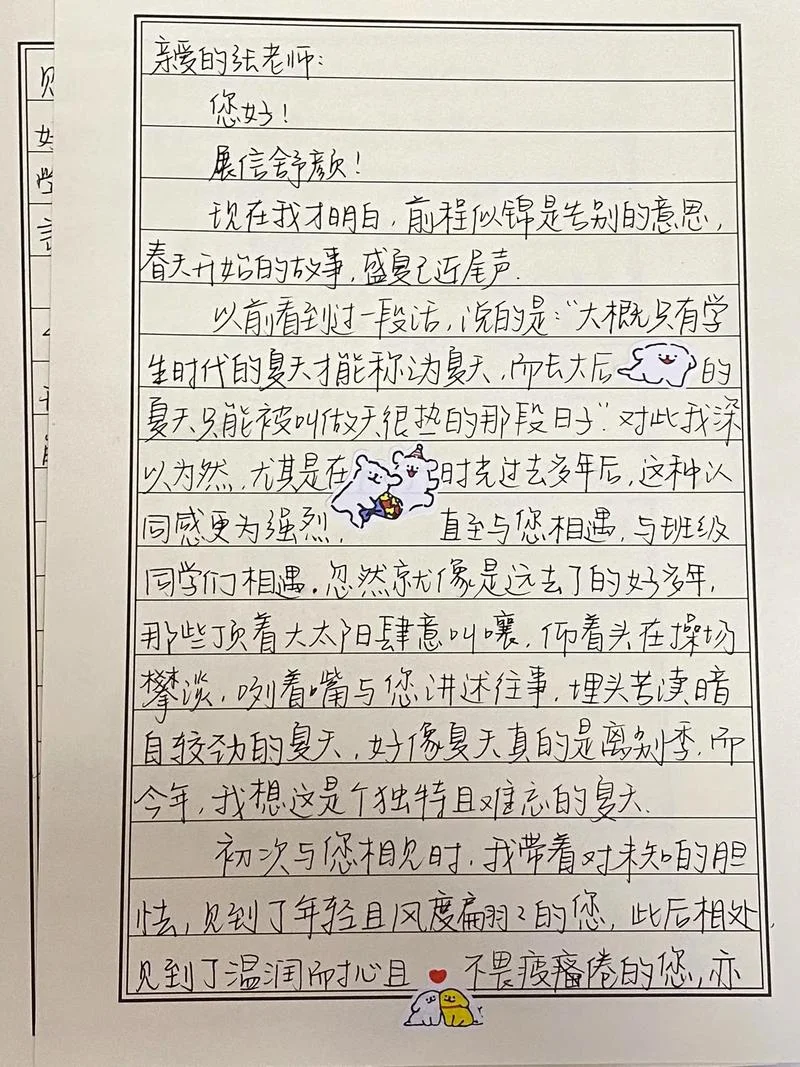 亲爱的张老师:
您好!
展信舒颜!
现在我才明白,前程似锦是告别的意思,
春天开始的故事,盛夏已近尾声.
以前看到过一段话,说的是:“大概只有学
生时代的夏天才能称为夏天,而长大后的
夏天只能被叫做天很热的那段日子”.对此我深
以为然,尤其是在时光过去多年后,这种认
同感更为强烈,直至与您相遇,与班级
同学们相遇.忽然就像是远去了的好多年,
那些顶着大太阳肆意叫嚷,仰着头在操场
攀谈,咧着嘴与您讲述往事,埋头苦读暗
自较劲的夏天,好像夏天真的是离别季,而
今年,我想这是个独特且难忘的夏天.
初次与您相见时,我带着对未知的胆
怯,见到了年轻且风度翩翩的您,此后相处,
见到了温润而耐心且不畏疲倦的您,亦
见
好
学